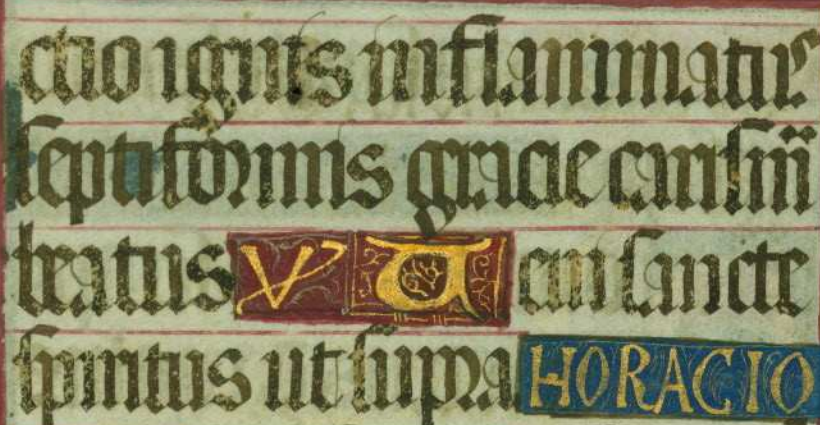 ctio ignis inflammatur
septiformis gracie carismī
beatus V Ueni sancte
spiritus ut supra HORACIO